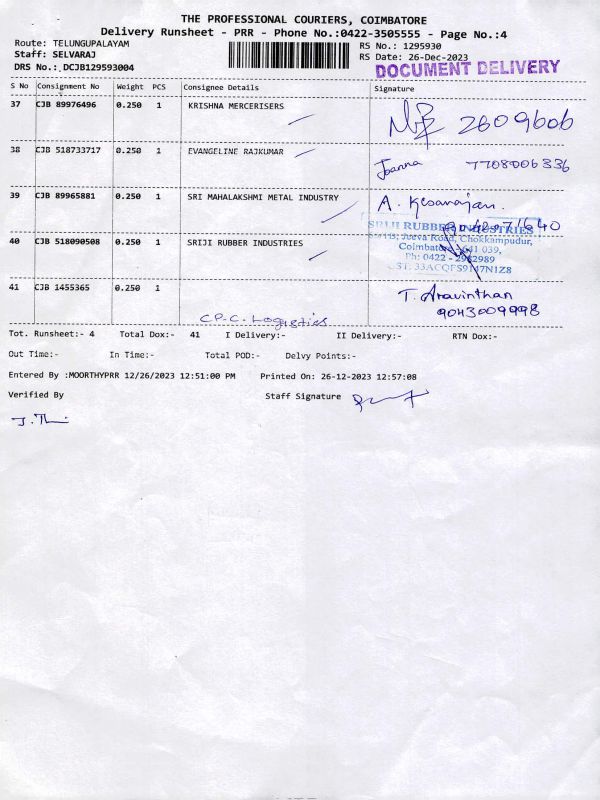 THE PROFESSIONAL COURIERS, COIMBATORE
Delivery Runsheet - PRR - Phone No.:0422-3505555 - Page No.:4
Route: TELUNGUPALAYAM
RS No.: 1295930
Staff: SELVARAJ
RS Date: 26-Dec-2023
DRS No.: DCJB129593004
DOCUMENT DELIVERY
S No Consignment No Weight PCS Consignee Details Signature
37 CJB 89976496 0.250 1 KRISHNA MERCERISERS
2609606
38 CJB 518733717 0.250 1 EVANGELINE RAJKUMAR
Joanna 7708006336
39 CJB 89965881 0.250 1 SRI MAHALAKSHMI METAL INDUSTRY
A. Kesavarajan.
SRIJI RUBBER INDUSTRIES
Jeeva Road, Chokkampudur,
40 CJB 518090508 0.250 1 SRIJI RUBBER INDUSTRIES
Coimbatore 641 039,
Ph: 0422 -
41 CJB 1455365 0.250 1
T. Aravinthan
9043009998
C.P.C. Logistics
Tot. Runsheet:- 4 Total Dox:- 41 I Delivery:- II Delivery:- RTN Dox:-
Out Time:- In Time:- Total POD:- Delvy Points:-
Entered By :MOORTHYPRR 12/26/2023 12:51:00 PM Printed On: 26-12-2023 12:57:08
Verified By Staff Signature